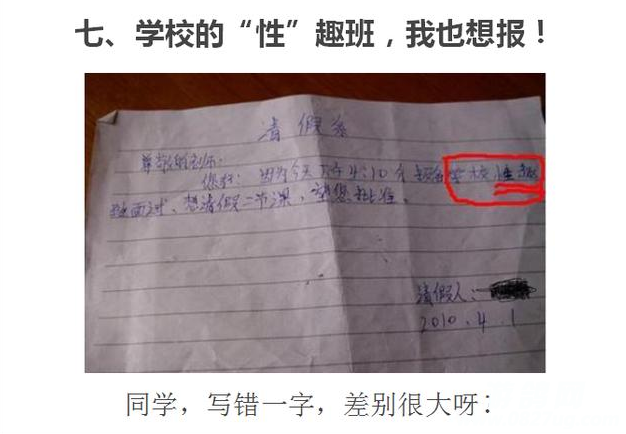 七、学校的“性”趣班，我也想报！
请假条
尊敬的老师：
您好：因为今天下午4:10分我有学校性趣
班面试、想请假一节课，望您批准。
请假人：
2010.4.1
同学，写错一字，差别很大呀：